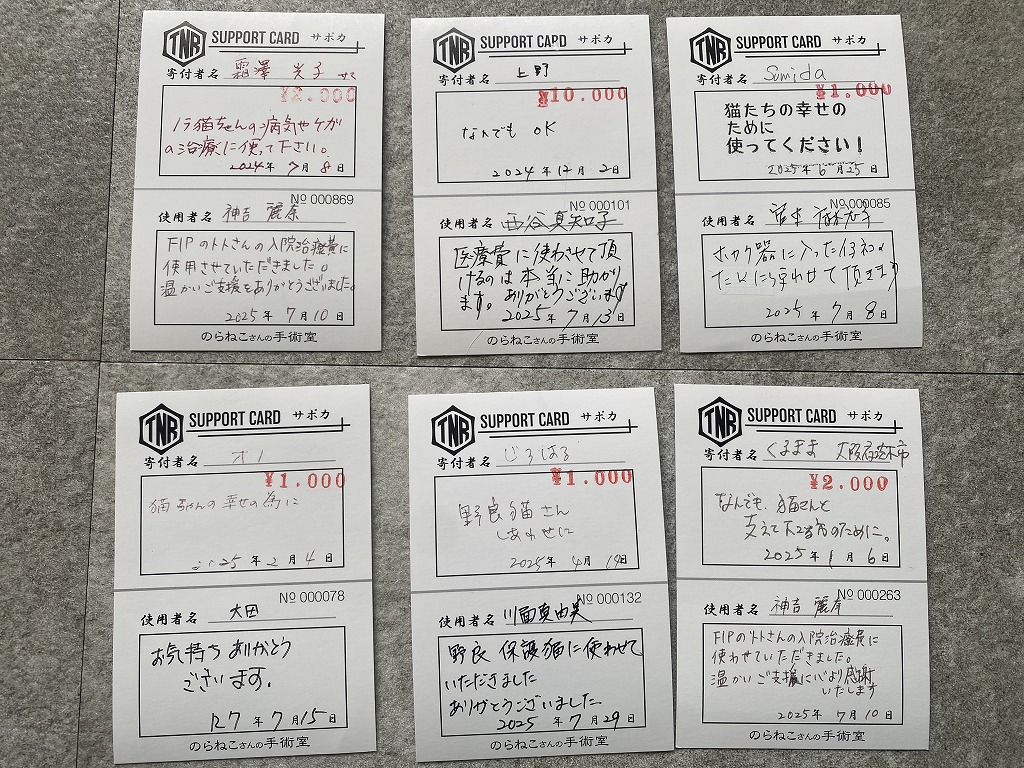 TNR SUPPORT CARD サポカ
寄付者名 霜澤 光子
¥2.000
ノラ猫ちゃんの病気やケガ
の治療に使って下さい。
2024年 7月 8日
№ 000869
使用者名 神吉 麗奈
FIPのトトさんの入院治療費に
使用させていただきました。
温かいご支援をありがとうございました。
2025年 7月 10日
のらねこさんの手術室
TNR SUPPORT CARD サポカ
寄付者名 上野
¥10.000
なんでも OK
2024年 12月 2日
№ 000101
使用者名 西谷 真知子
医療費に使わせて頂
けるのは本当に助かり
ます。ありがとうございます
2025年 7月 13日
のらねこさんの手術室
TNR SUPPORT CARD サポカ
寄付者名 Sumida
¥1.000
猫たちの幸せの
ために
使ってください!
2025年 6月 25日
№ 000085
使用者名
に入った
使わせて頂きます
2025年 7月 8日
のらねこさんの手術室
TNR SUPPORT CARD サポカ
寄付者名 オノ
¥1.000
猫ちゃんの幸せの為に
2025年 2月 4日
№ 000078
使用者名 太田
お気持ち ありがとう
ございます。
R7年 7月 15日
のらねこさんの手術室
TNR SUPPORT CARD サポカ
寄付者名 じろはる
¥1.000
野良猫さん
しあわせに
2025年 4月 19日
№ 000132
使用者名 川面真由美
野良 保護猫に使わせて
いただきました
ありがとうございました
2025年 7月 29日
のらねこさんの手術室
TNR SUPPORT CARD サポカ
寄付者名 くるまま 大阪府茨木市
¥2.000
なんでも、猫さんと
支えて下さる方のために。
2025年 1月 6日
№ 000263
使用者名 神吉 麗奈
FIPのトトさんの入院治療費に
使わせていただきました。
温かいご支援に心より感謝
いたします
2025年 7月 10日
のらねこさんの手術室